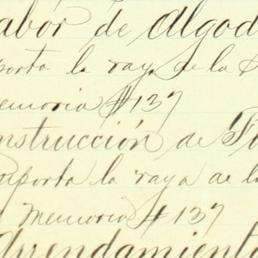 Labor de algod
porta la raya de la S
Memoria #137
nstrucción de P
mporta la raya de la
Memoria #137
Arrendamiento